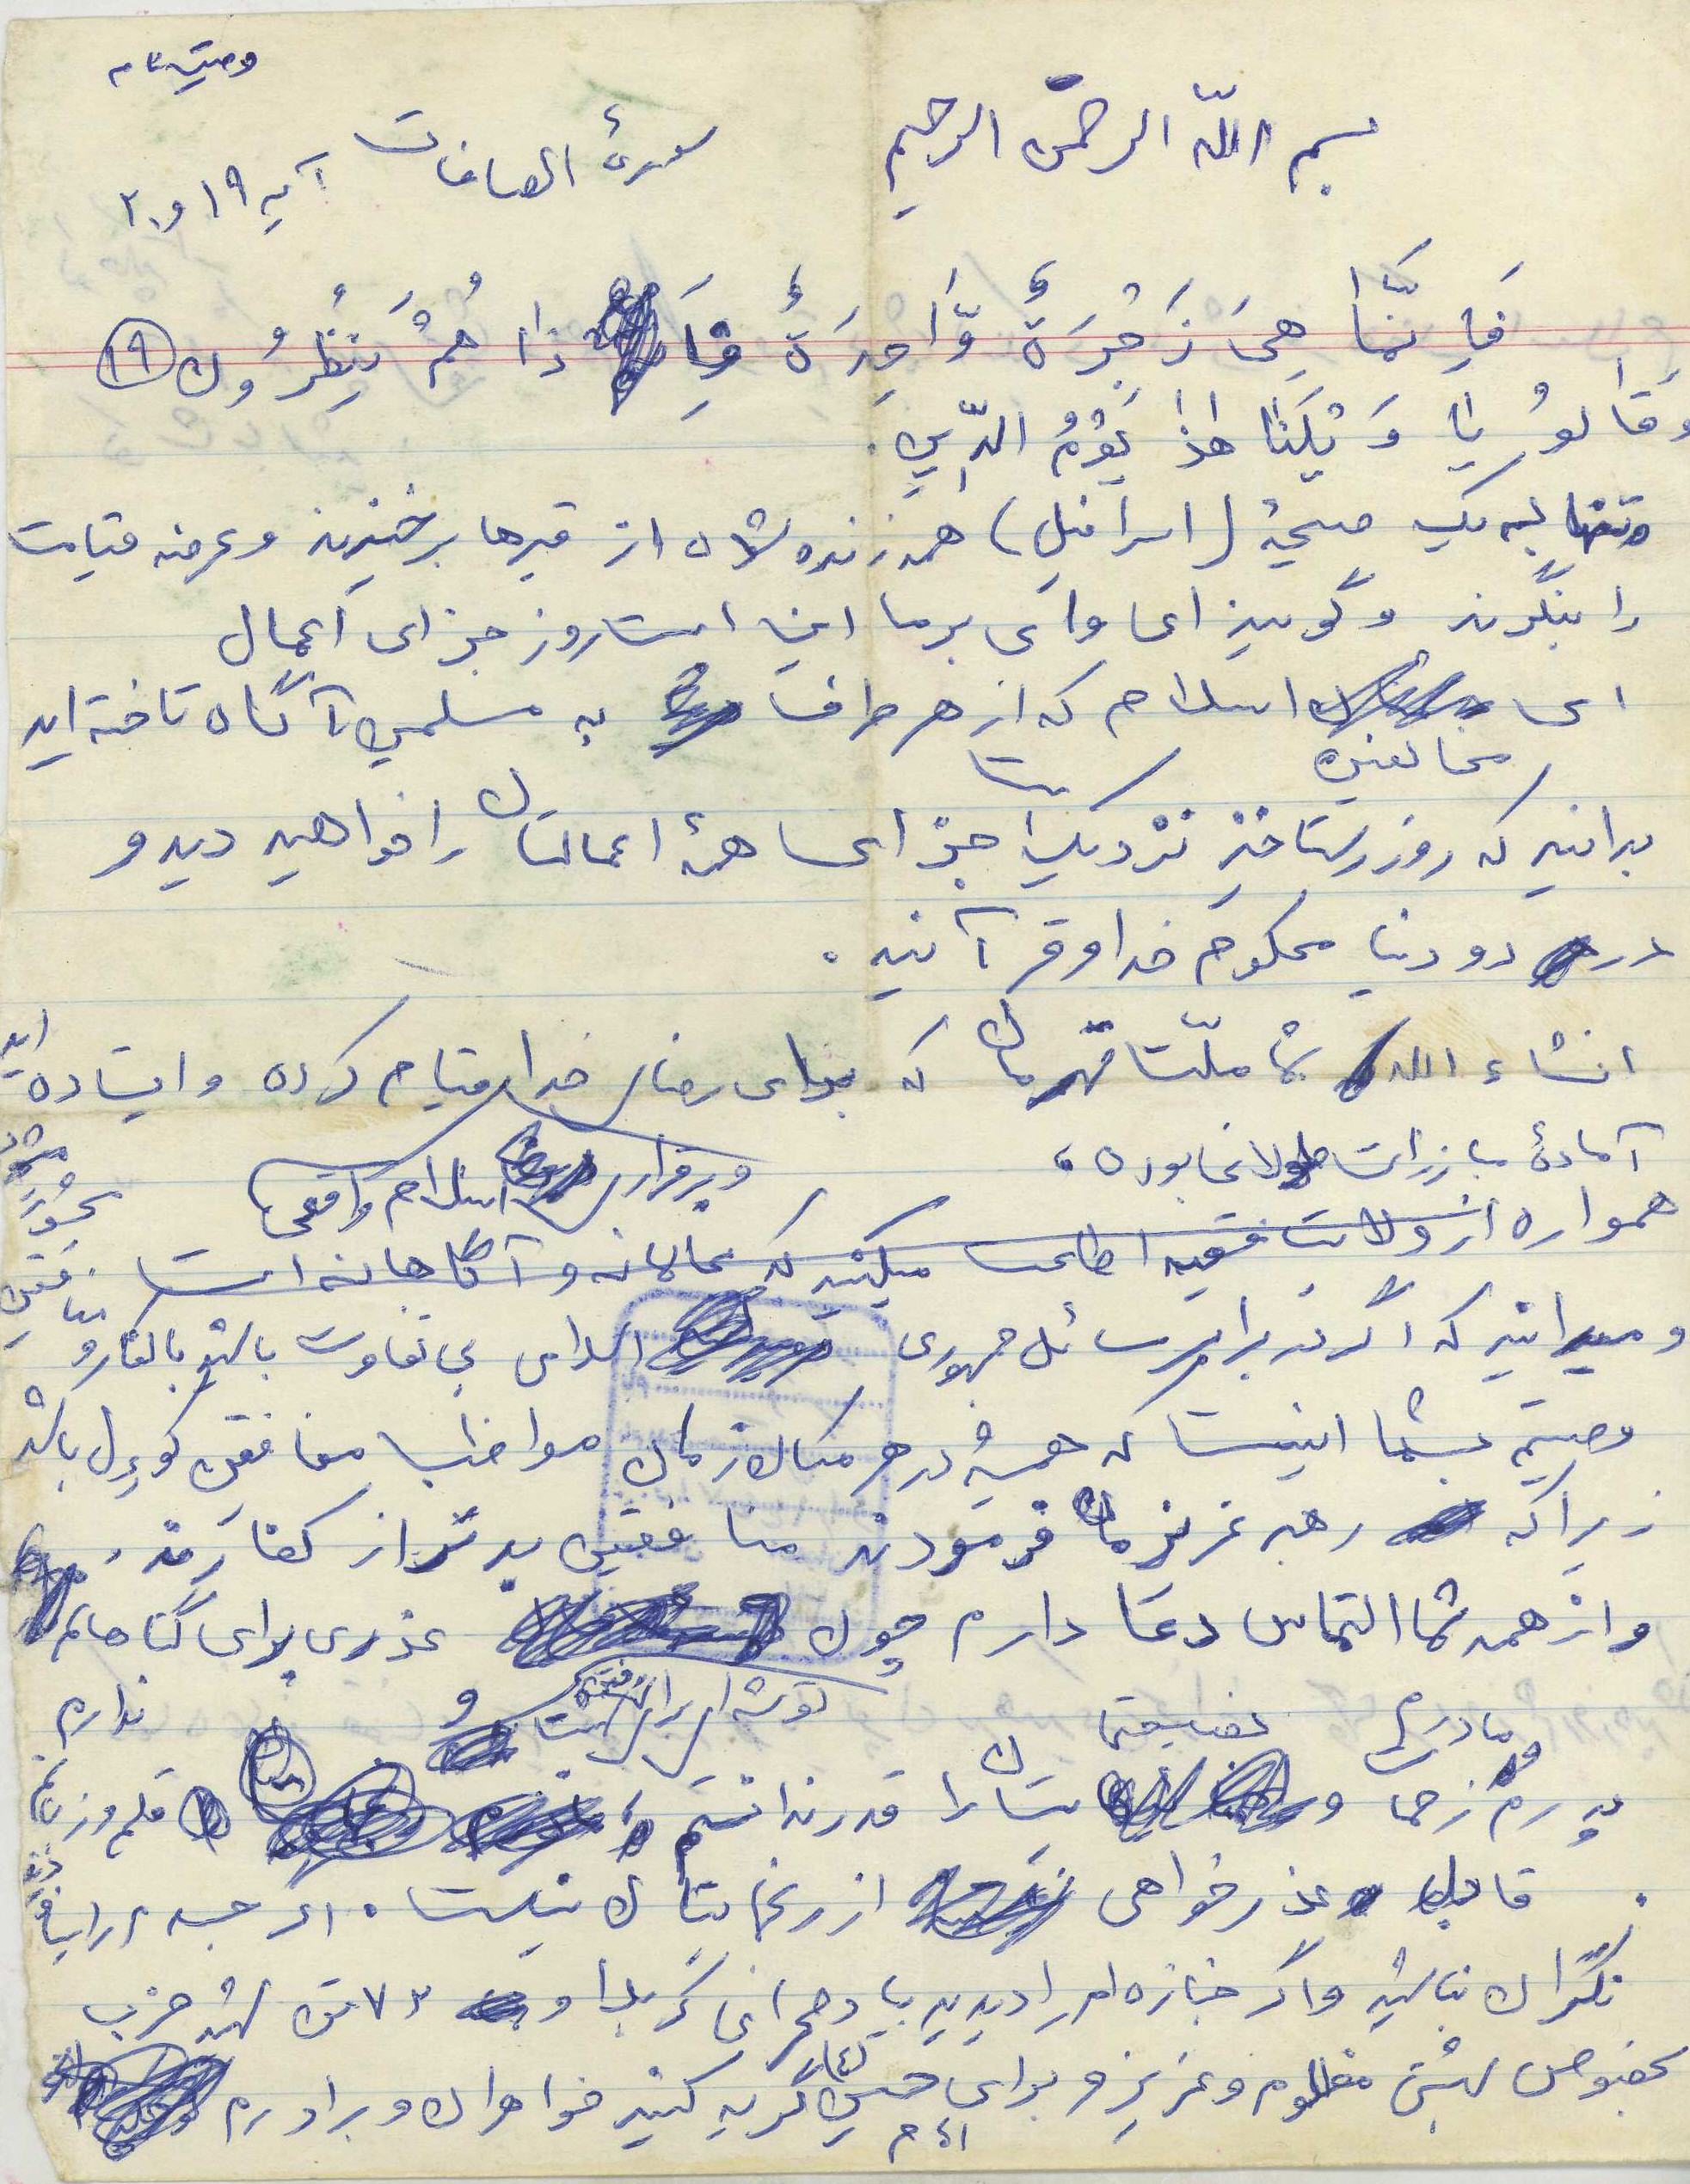 وصیت نامه
بسم اللّه الرحمن الرحیم
سورهٔ الصافات آیه ۱۹ و ۲۰
فَاِنَّمٰا هِیَ زَجْرَةٌ وَّاحِدَةٌ فَاِ ذٰا هُمْ یَنْظُرُون ۱۹
وَقٰالوُ یٰا وَیْلَنٰا هٰذٰا یَوْمُ الدّینِ.
تنها به یک صیحهٔ (اسرافیل) همه زنده شده از قبرها برخیزند و عرصه قیامت
را بنگرند و گویند ای وای بر ما این است روز جزای اعمال
ای مخالفین اسلام که از هر طرف به مسلمین آگاه تاخته اید
بدانید که روز رستاخیز نزدیک است جزای همهٔ اعمالتان را خواهید دید و
در دو دنیا محکوم خدا و قرآنید.
انشاء الله شما ملّت قهرمان که برای رضای خدا و برقراری اسلام واقعی قیام کرده و ایستاده اید
آمادهٔ مبارزات طولانی بوده،
همواره از ولایت فقیه اطاعت میکنید که عالمانه و آگاهانه است
و میدانید که اگر در برابر مسائل جمهوری اسلامی بی تفاوت باشید با کفار و منافقین
وصیتم بشما اینست که همیشه در هر مکان زمان مواظب منافقین کوردل باشید
زیرا که رهبر عزیزمان فرمودند منافقین بدتر از کفارند.
و از همه شما التماس دعا دارم چون توشه ای برای آخرت و عذری برای گناهانم ندارم
پدرم و مادرم زحمات و نصیحتهایتان را قدر ندانستم قلم و زبانم
قابل عذر خواهی از زحماتتان نیست. اگر جسدم را نیافتند
نگران نباشید و اگر جنازه ام را دیدید بیاد صحرای کربلا و ۷۲ تن شهید حزب
بخصوص بهشتی مظلوم و عزیز و برای حسین گریه کنید خواهران و برادرم